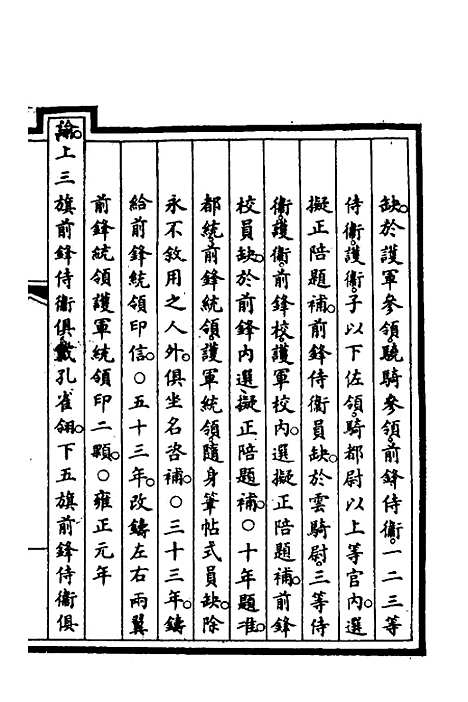 缺。於護軍參領。驍騎參領。前鋒侍衞。一二三等
侍衞。護衞。子以下佐領。騎都尉以上等官內。選
擬正陪題補。前鋒侍衞員缺。於雲騎尉。三等侍
衞。護衞。前鋒校。護軍校內。選擬正陪題補。前鋒
校員缺。於前鋒內選擬正陪題補。○十年題准。
都統。前鋒統領。護軍統領。隨身筆帖式員缺。除
永不敘用之人外。俱坐名咨補。○三十三年。鑄
給前鋒統領印信。○五十三年。改鑄左右兩翼
前鋒統領護軍統領印二顆。○雍正元年
諭。上三旗前鋒侍衞俱戴孔雀翎。下五旗前鋒侍衞俱